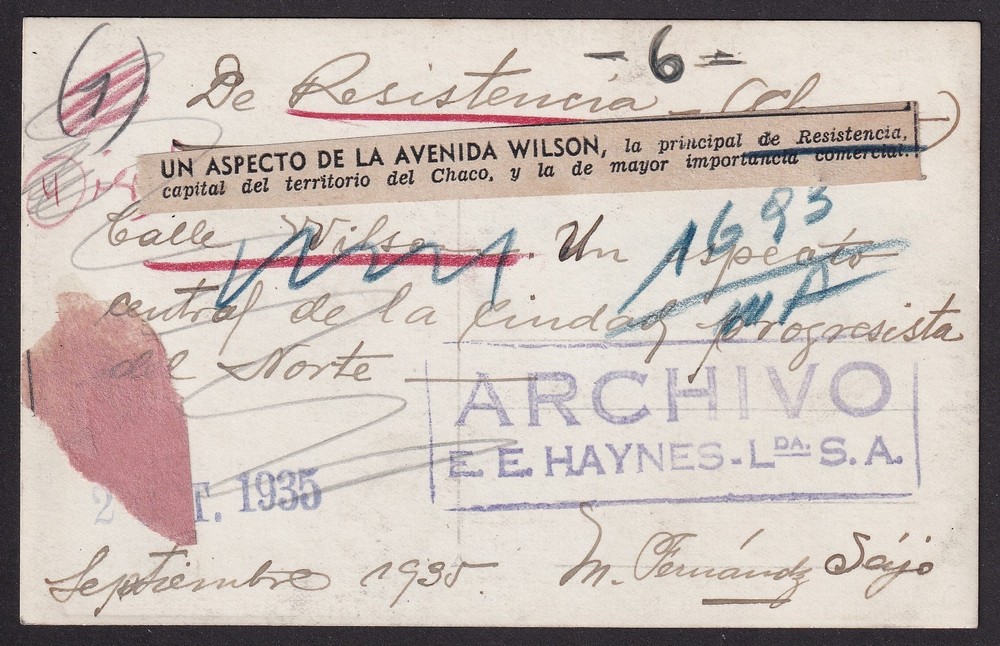 (1)
- 6 =
De Resistencia - (Ch
UN ASPECTO DE LA AVENIDA WILSON, la principal de Resistencia,
capital del territorio del Chaco, y la de mayor importancia comercial.
4
Calle Wilson. Un aspecto
1693
central de la ciudad progresista
del Norte
ARCHIVO
E. E. HAYNES-LDA. S. A.
2 T. 1935
Septiembre 1935
M. Fernández Seijo